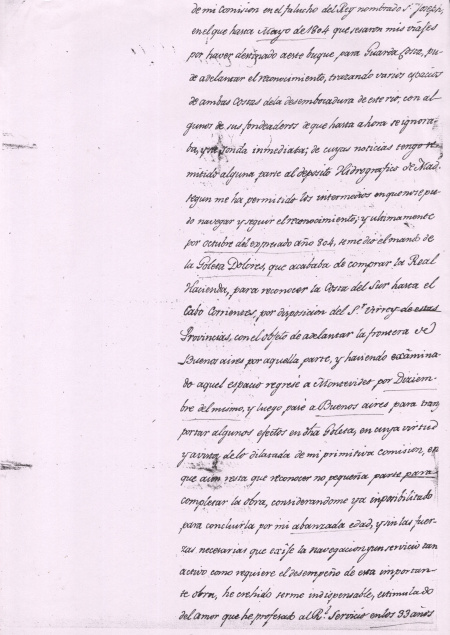 de mi comision en el falucho del Rey nombrado Sn. Joseph,
en el que hasta Mayo de 1804 que sesaron mis viajes
por haver destinado aeste buque para Guarda Costa, pu-
de adelantar el reconocimiento, trazando varios espacios
de ambas Costas dela desembocadura de este rio, con al-
gunos de sus fondeaderos de que hasta ahora se ignora-
ba, y su sonda inmediata; de cuyas noticias tengo re-
mitido alguna parte al deposito Hidrografico de Madd.
segun me ha permitido los intermedios en que no se pu-
do navegar y seguir el reconocimiento; y ultimamente
por octubre del expresado año 804, se me dio el mando de
la Goleta Dolores, que acababa de comprar la Real
Hacienda, para reconocer la Costa del Sur hasta el
Cabo Corrientes, por disposicion del Sr. Virrey de estas
Provincias, con el objeto de adelantar la frontera de
Buenos aires por aquella parte, y haviendo examina-
do aquel espacio regresé a Montevideo por Diziem-
bre del mismo, y luego pasé a Buenos aires para trans
portar algunos efectos en dha Goleta, en cuya virtud
y avista delo dilatada de mi primitiva comision, en
que aun resta que reconocer no pequeña parte para
completar la obra, considerandome ya imposibilitado
para concluirla por mi abanzada edad, y sin las fuer-
zas necesarias que exije la navegacion y un servicio tan
activo como requiere el desempeño de esta importan-
te obra, he crehido serme indispensable, estimulado
del amor que he profesado al Rl. Servicio en los 33 años